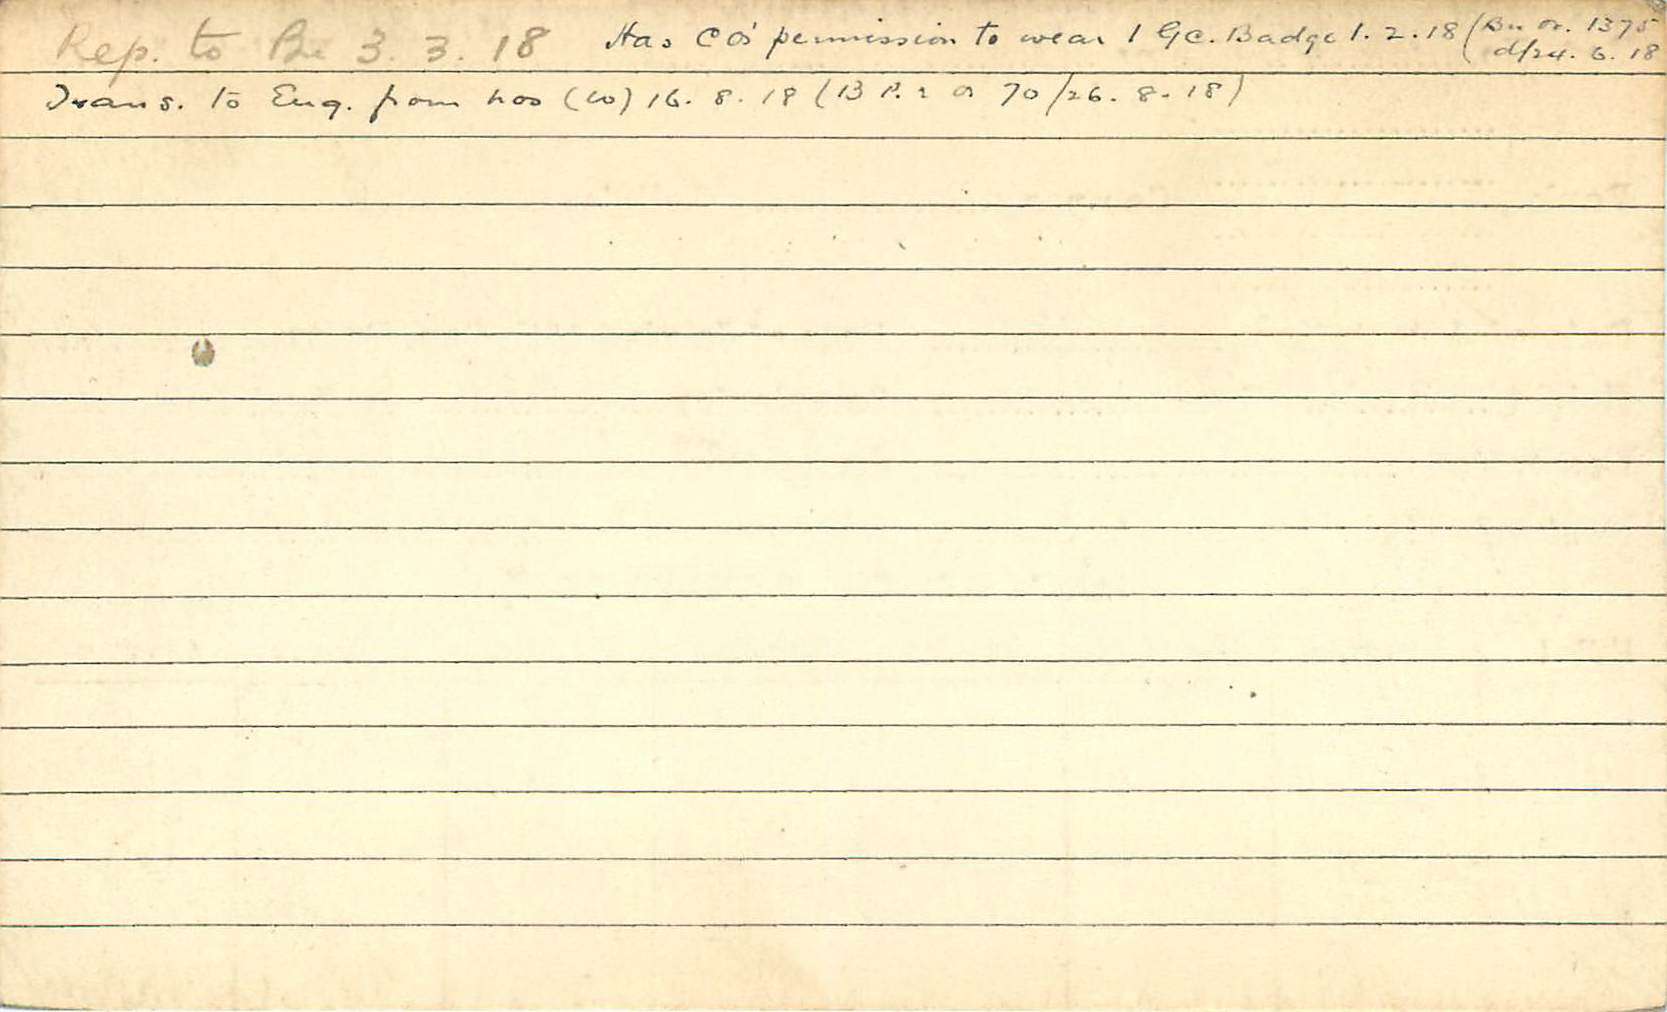 Rep. to Bn 3. 3. 18 Has CO's permission to wear 1 GC. Badge 1. 2. 18 (Bn or. 1375 d/24. 6. 18
Trans. to Eng. from hos (W) 16. 8. 18 (B P. 2 O 70/26. 8. 18)